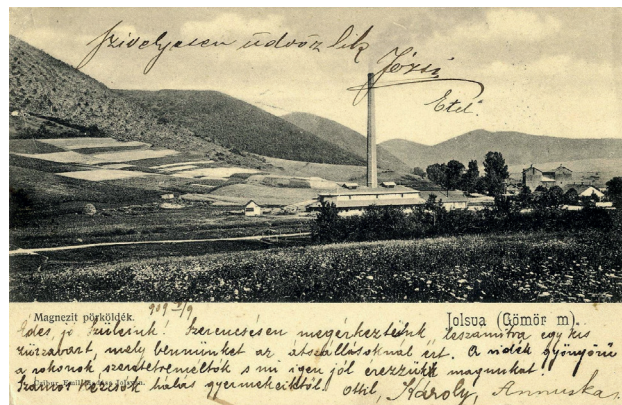 Szivelyesen üdvözlik Józsi
Etel
Magnezit pörköldék.
909 V/9
Jolsva (Gömör m).
Édes jó Szüleink! Szerencsésen megérkeztünk, leszámitva egy kis
zürzavart, mely bennünket az átszállásoknál ért. A vidék gyönyörü
a rokonok szeretetreméltók s mi igen jól érezzük magunkat.
kezeiket hálás gyermekeiktől. Ottil, Károly, Annuska.